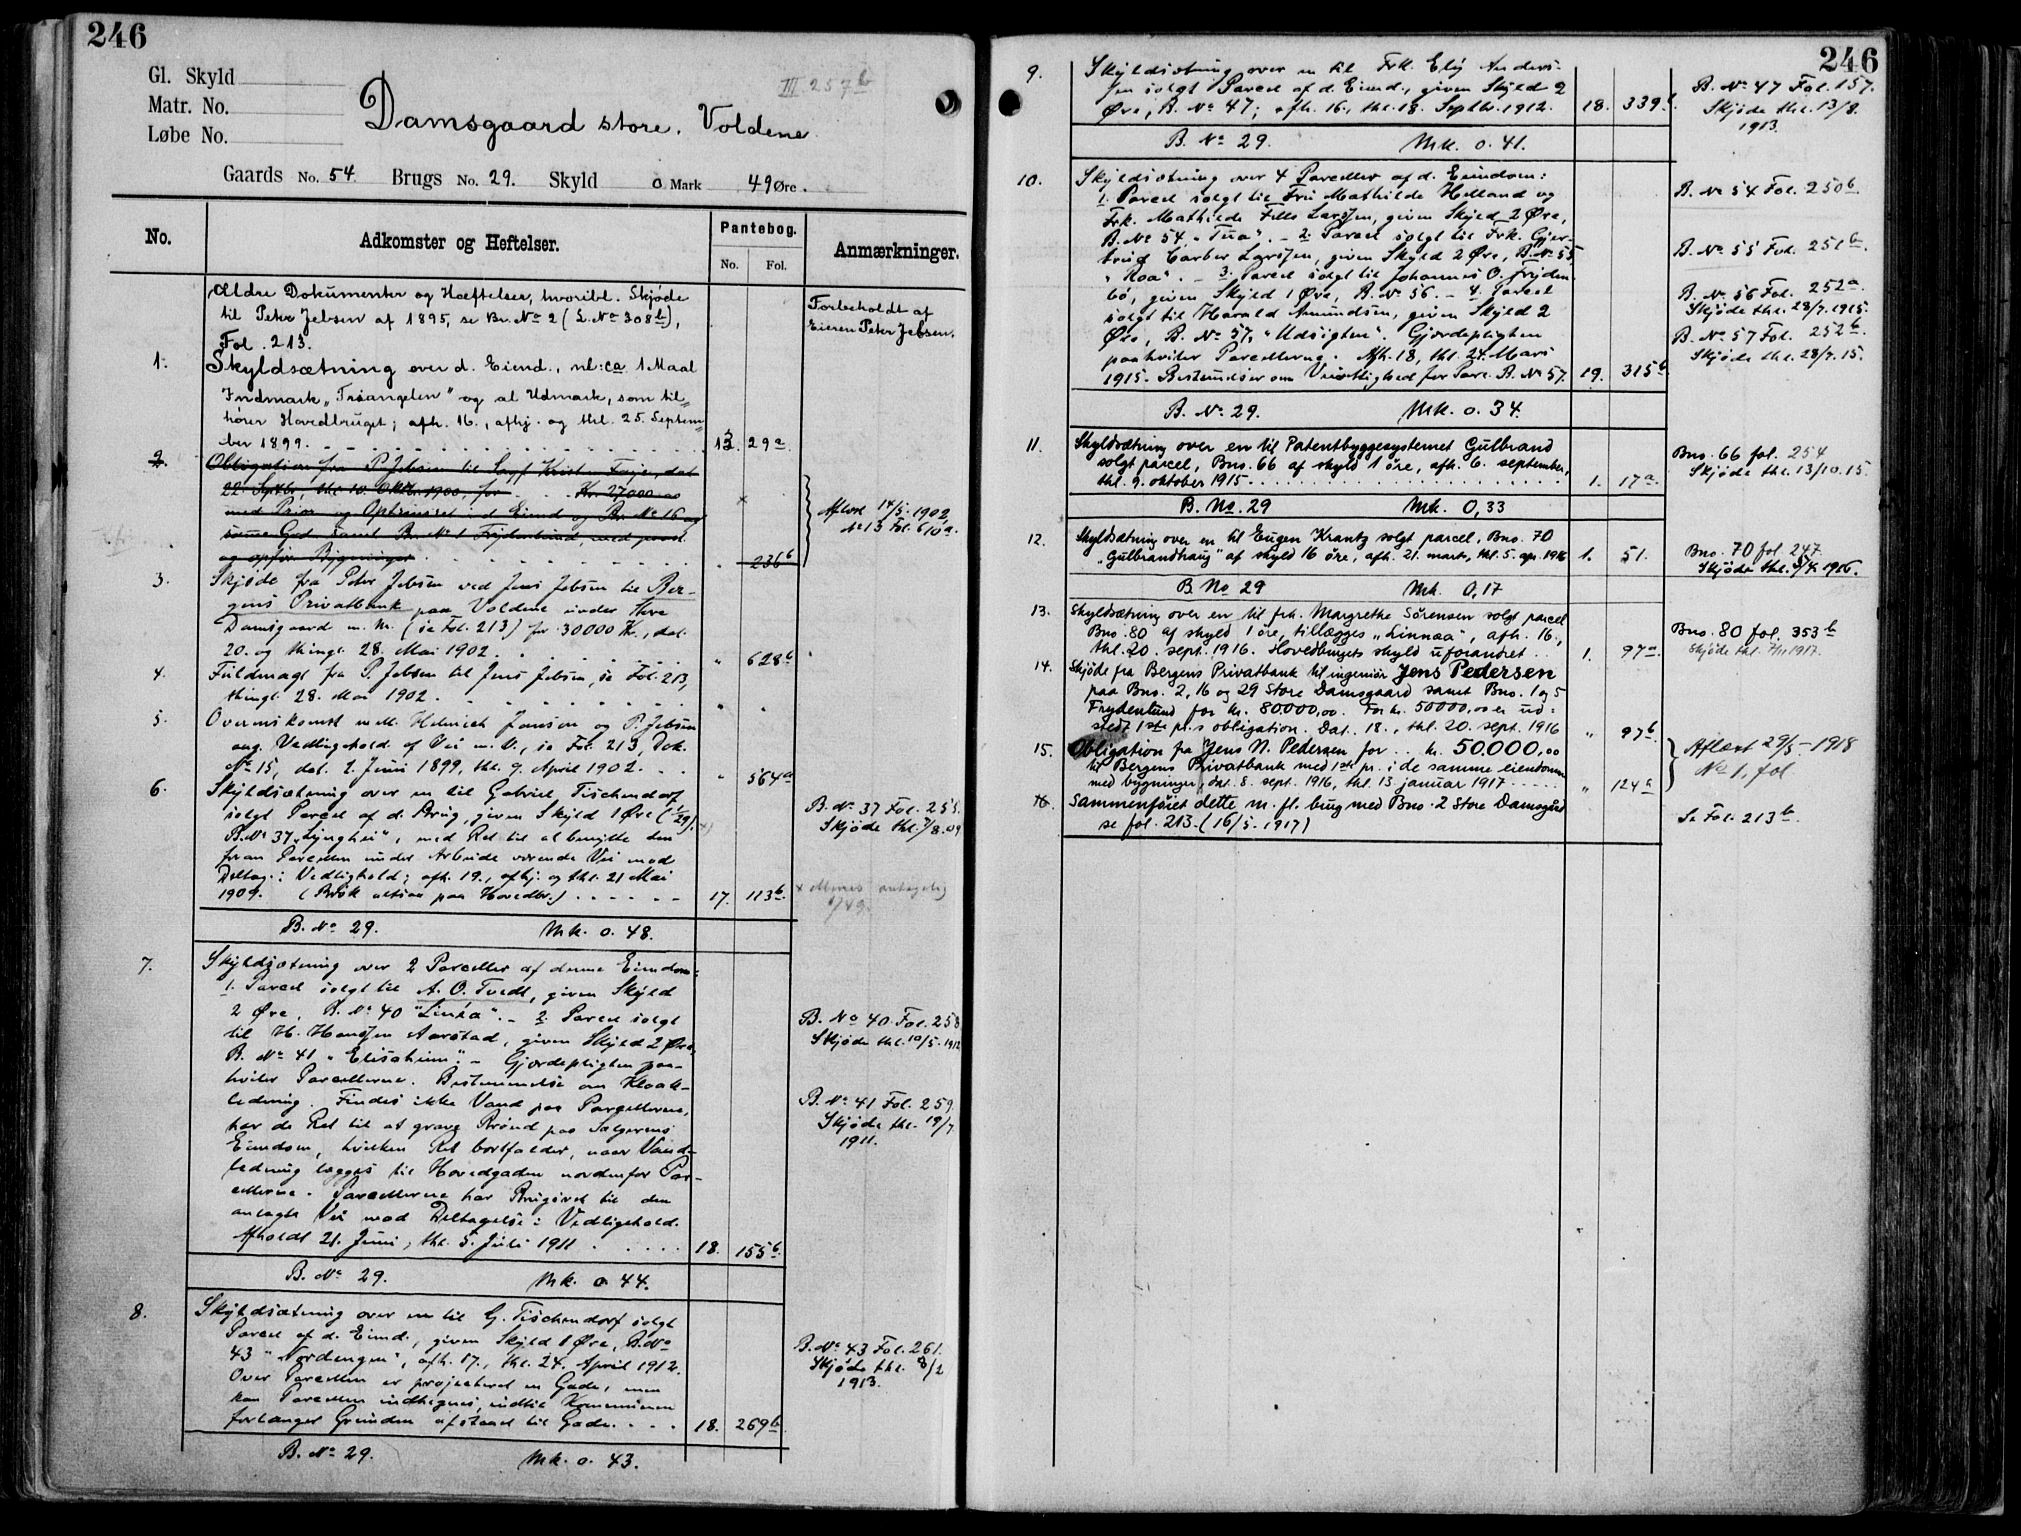 246
Gl. Skyld
Matr. No.
Løbe No.
III 257b
Damsgaard store. Voldene
Gaards No. 54. Brugs No. 29. Skyld 0 Mark 49 Øre.
No. Adkomster og Heftelser. Pantebog. Anmærkninger.
No. Fol.
Ældre Dokumenter og Hæftelser, hvoribl. Skjøde
til Peter Jebsen af 1895, se Br. No 2 (L. No 308b),
Fol. 213.
Forbeholdt af
Eieren Peter Jebsen.
1. Skyldsætning over d. Eiend., nl: ca 1 Maal
Indmark "Triangelen" og al Udmark, som til-
hører Hovedbruget; afh. 16., afhj. og thl. 25. Septem-
ber 1899. 13. 29a
2. Obligation fra P. Jebsen til Sagf. Kristen Faye, dat.
22. Septbr., thl. 10. Oktbr. 1900, for Kr. 27000.00
med Prior. og Optrinsret i d. Eiend og Br. No 16 og
samme Gd. samt Br. No 1 Frydenlund, med paast.
og opfør. Bygninger. 236b
Aflæst 14/5-1902
No 13 Fol. 610a.
3. Skjøde fra Peter Jebsen ved Jens Jebsen til Ber-
gens Privatbank paa Voldene under Store
Damsgaard m. M. (se Fol. 213) for 30000 Kr., dat.
20. og thingl. 28. Mai 1902. " 628b
4. Fuldmagt fra P. Jebsen til Jens Jebsen, se Fol. 213,
thingl. 28. Mai 1902. " "
5. Overenskomst mell. Heinrich Jansen og P. Jebsen
ang. Vedligehold. af Vei m. V., se Fol. 213, Dok.
No 15, dat. 2. Juni 1899, thl. 9. April 1902. " 564a
6. Skyldsætning over en til Gabriel Tischendorf
solgt Parcel af d. Brug, given Skyld 1 Øre (1/29).
B. No 37 "Lynghei", med Ret til at benytte den
foran Parcellen under Arbeide værende Vei mod
Deltag. i Vedlighold; afh. 19., afhj. og thl. 21 Mai
1909. (Brøk altsaa paa Hovedbr.) 17. 113b
B. No 37 Fol. 255.
Skjøde thl. 7/8.09
x Menes antagelig
1/49.
B. No 29. Mk. 0. 48.
7. Skyldsætning over 2 Parceller af denne Eiendom:
1. Parcel solgt til A. O. Tvedt, given Skyld
2 Øre, B. No 40 "Linka". - 2. Parcel solgt
til H. Hanssen Aarstad, given Skyld 2 Øre,
B. No 41 "Elisaheim". - Gjærdepligten paa-
hviler Parcellerne. Bestemmelse om Kloak-
ledning. Findes ikke Vand paa Parcellerne,
har de Ret til at grave Brønd paa Sælgerens
Eiendom, hvilken Ret bortfalder, naar Vand-
ledning lægges til Hovedgaden nordenfor Par-
cellerne. Parcellerne har Brugsret til den
anlagte Vei mod Deltagelse i Vedligehold.
Afholdt 21. Juni, thl. 5. Juli 1911. 18. 155b
B. No 40. Fol. 258
Skjøde thl. 10/5-1912
B. No 41 Fol. 259.
Skjøde thl. 19/7
1911.
B. No 29. Mk. 0. 44.
8. Skyldsætning over en til G. Tischendorf solgt
Parcel af d. Eiend., given Skyld 1 Øre, B. No
43 "Nordengen", afh. 17., thl. 24. April 1912.
Over Parcellen er projecteret en Gade, men
kan Parcellen indhegnes, indtil Kommunen
forlanger Grunden afstaaet til Gade. 18. 269b
B. No 43 Fol. 261.
Skjøde thl. 8/2
1913.
B. No 29. Mk. 0. 43.
246
9. Skyldsætning over en til Frk. Elly Anders-
sen solgt Parcel af d. Eiend., given Skyld 2
Øre, B. No 47; afh. 16., thl. 18. Septbr. 1912. 18. 339b
B. No 47 Fol. 157.
Skjøde thl. 13/8.
1913.
B. No 29. Mk. 0. 41.
10. Skyldsætning over 4 Parceller af d. Eiendom:
1. Parcel solgt til Fru Mathilde Helland og
Frk. Mathilde Larssen, given Skyld 2 Øre,
B. No 54 "Tua". - 2. Parcel solgt til Frk. Gjer-
trud Larssen, given Skyld 2 Øre, B. No 55
"Roa". - 3. Parcel solgt til Johannes O. Fryden-
bø, given Skyld 1 Øre, B. No 56. - 4. Parcel
solgt til Harald Amundsen, given Skyld 2
Øre, B. No 57, "Udsigten". Gjærdepligten
paahviler Parcellerne. Afh. 18, thl. 24. Mars
1915. Bestemmelser om Veirettighed for Parc. B. No 57. 19. 315b
B. No 54 Fol. 250b.
B. No 55 Fol. 251b
B. No 56 Fol. 252a.
Skjøde thl. 28/7.1915.
B. No 57 Fol. 252b.
Skjøde thl. 28/7.15.
B. No 29. Mk. 0. 34.
11. Skyldsætning over en til Patentbyggesystemet Gulbrand
solgt parcel, Bno. 66 af skyld 1 øre, afh. 6. september,
thl. 9. oktober 1915. 1. 17a.
Bno. 66 fol. 254
Skjøde thl. 13/10.15.
B. No. 29 Mk. 0,33
12. Skyldsætning over en til Eugen Krantz solgt parcel, Bno. 70
"Gulbrandhaug" af skyld 16 øre, afh. 21. mars, thl. 5. apr. 1916 1. 51.
Bno. 70 fol. 247.
Skjøde thl. 5/4. 1916.
B. No 29 Mk. 0,17
13. Skyldsætning over en til frk. Margrethe Sørensen solgt parcel
Bno. 80 af skyld 1 øre, tillægges "Linnæa", afh. 16.,
thl. 20. sept. 1916. Hovedbrugets skyld uforandret. 1. 97a.
Bno. 80 fol. 353b
Skjøde thl. 1917.
14. Skjøde fra Bergens Privatbank til ingeniør Jens Pedersen
paa Bno. 2, 16 og 29 Store Damsgaard samt Bno. 1 og 5
Frydenlund for kr. 80.000,00. For kr. 50000,00 er ud-
stedt 1ste pr.s obligation. Dat. 18., thl. 20. sept. 1916 " 97b.
15. Obligation fra Jens N. Pedersen for kr. 50.000,00
til Bergens Privatbank med 1ste pr. i de samme eiendomme
med bygninger, dat. 8. sept. 1916, thl. 13 januar 1917 " 124a
Aflæst 29/5-1918
No 1, fol
16. Sammenføiet dette m. fl. brug med Bno. 2 Store Damsgård
se fol. 213. (16/5-1917)
Se Fol. 213b.